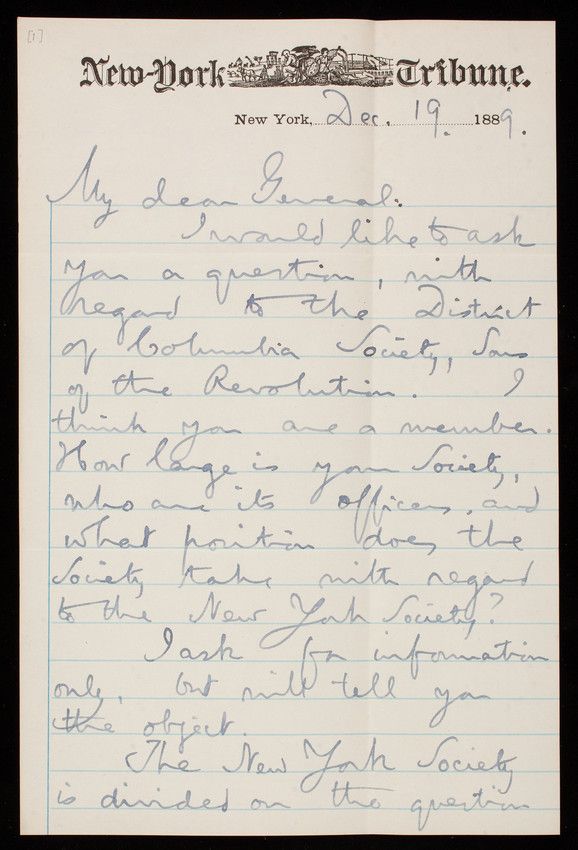 [1]
New-York Tribune.
New York, Dec. 19. 1889.
My dear General:
I would like to ask
you a question, with
regard to the District
of Columbia Society, Sons
of the Revolution. I
think you are a member.
How large is your Society,
who are its officers, and
what position does the
Society take with regard
to the New York Society?
I ask for information
only, but will tell you
the object.
The New York Society
is divided on the question